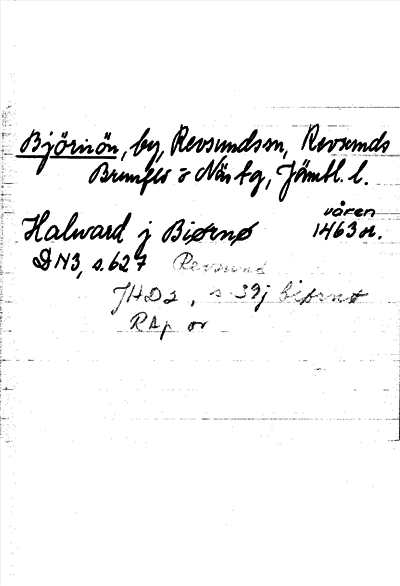 Björnön, by, Revsundssn, Revsunds
Brunflo o Näs tg, Jämtl. l.
Halward j Biørnø våren 1463 or.
DN3, s. 627 Revsund
JHD2, s 39 j biørnø
RAp or